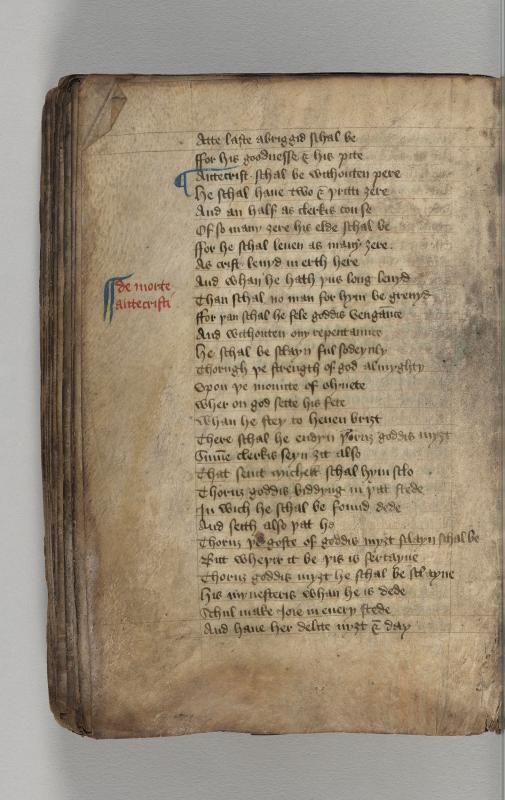 Atte laste abriggid schal be
ffor his goodnesse & his pite
Antecrist schal be withouten pere
He schal haue two & þritti ȝere
And an half as clerkis con se
Of so many ȝere his elde schal be
ffor he schal leuen as many ȝere
As crist leuyd in erth here
de morte
antecristi
And whan he hath þus long leuyd
Than schal no man for hym be greuyd
ffor þan schal he fele goddis vengance
And withouten ony repentaunce
He schal be sclayn ful sodeynly
Thorugh þe strength of god almyghty
Vpon þe mounte of olyuete
Wher on god sette his fete
Whan he stey to heuen briȝt
There schal he endyn þoruȝ goddis myȝt
Summe clerkis seyn ȝit also
That seint Michell schal hym sclo
Thoruȝ goddis biddyng in þat stede
In wich he schal be found dede
And seith also þat he
Thoruȝ þe goste of goddis myȝt sclayn schal be
But wheþir it be þis is sertayne
Thoruȝ goddis myȝt he schal be sclayne
His mynesteris whan he is dede
Schul make Joie in euery stede
And haue her delite nyȝt & day